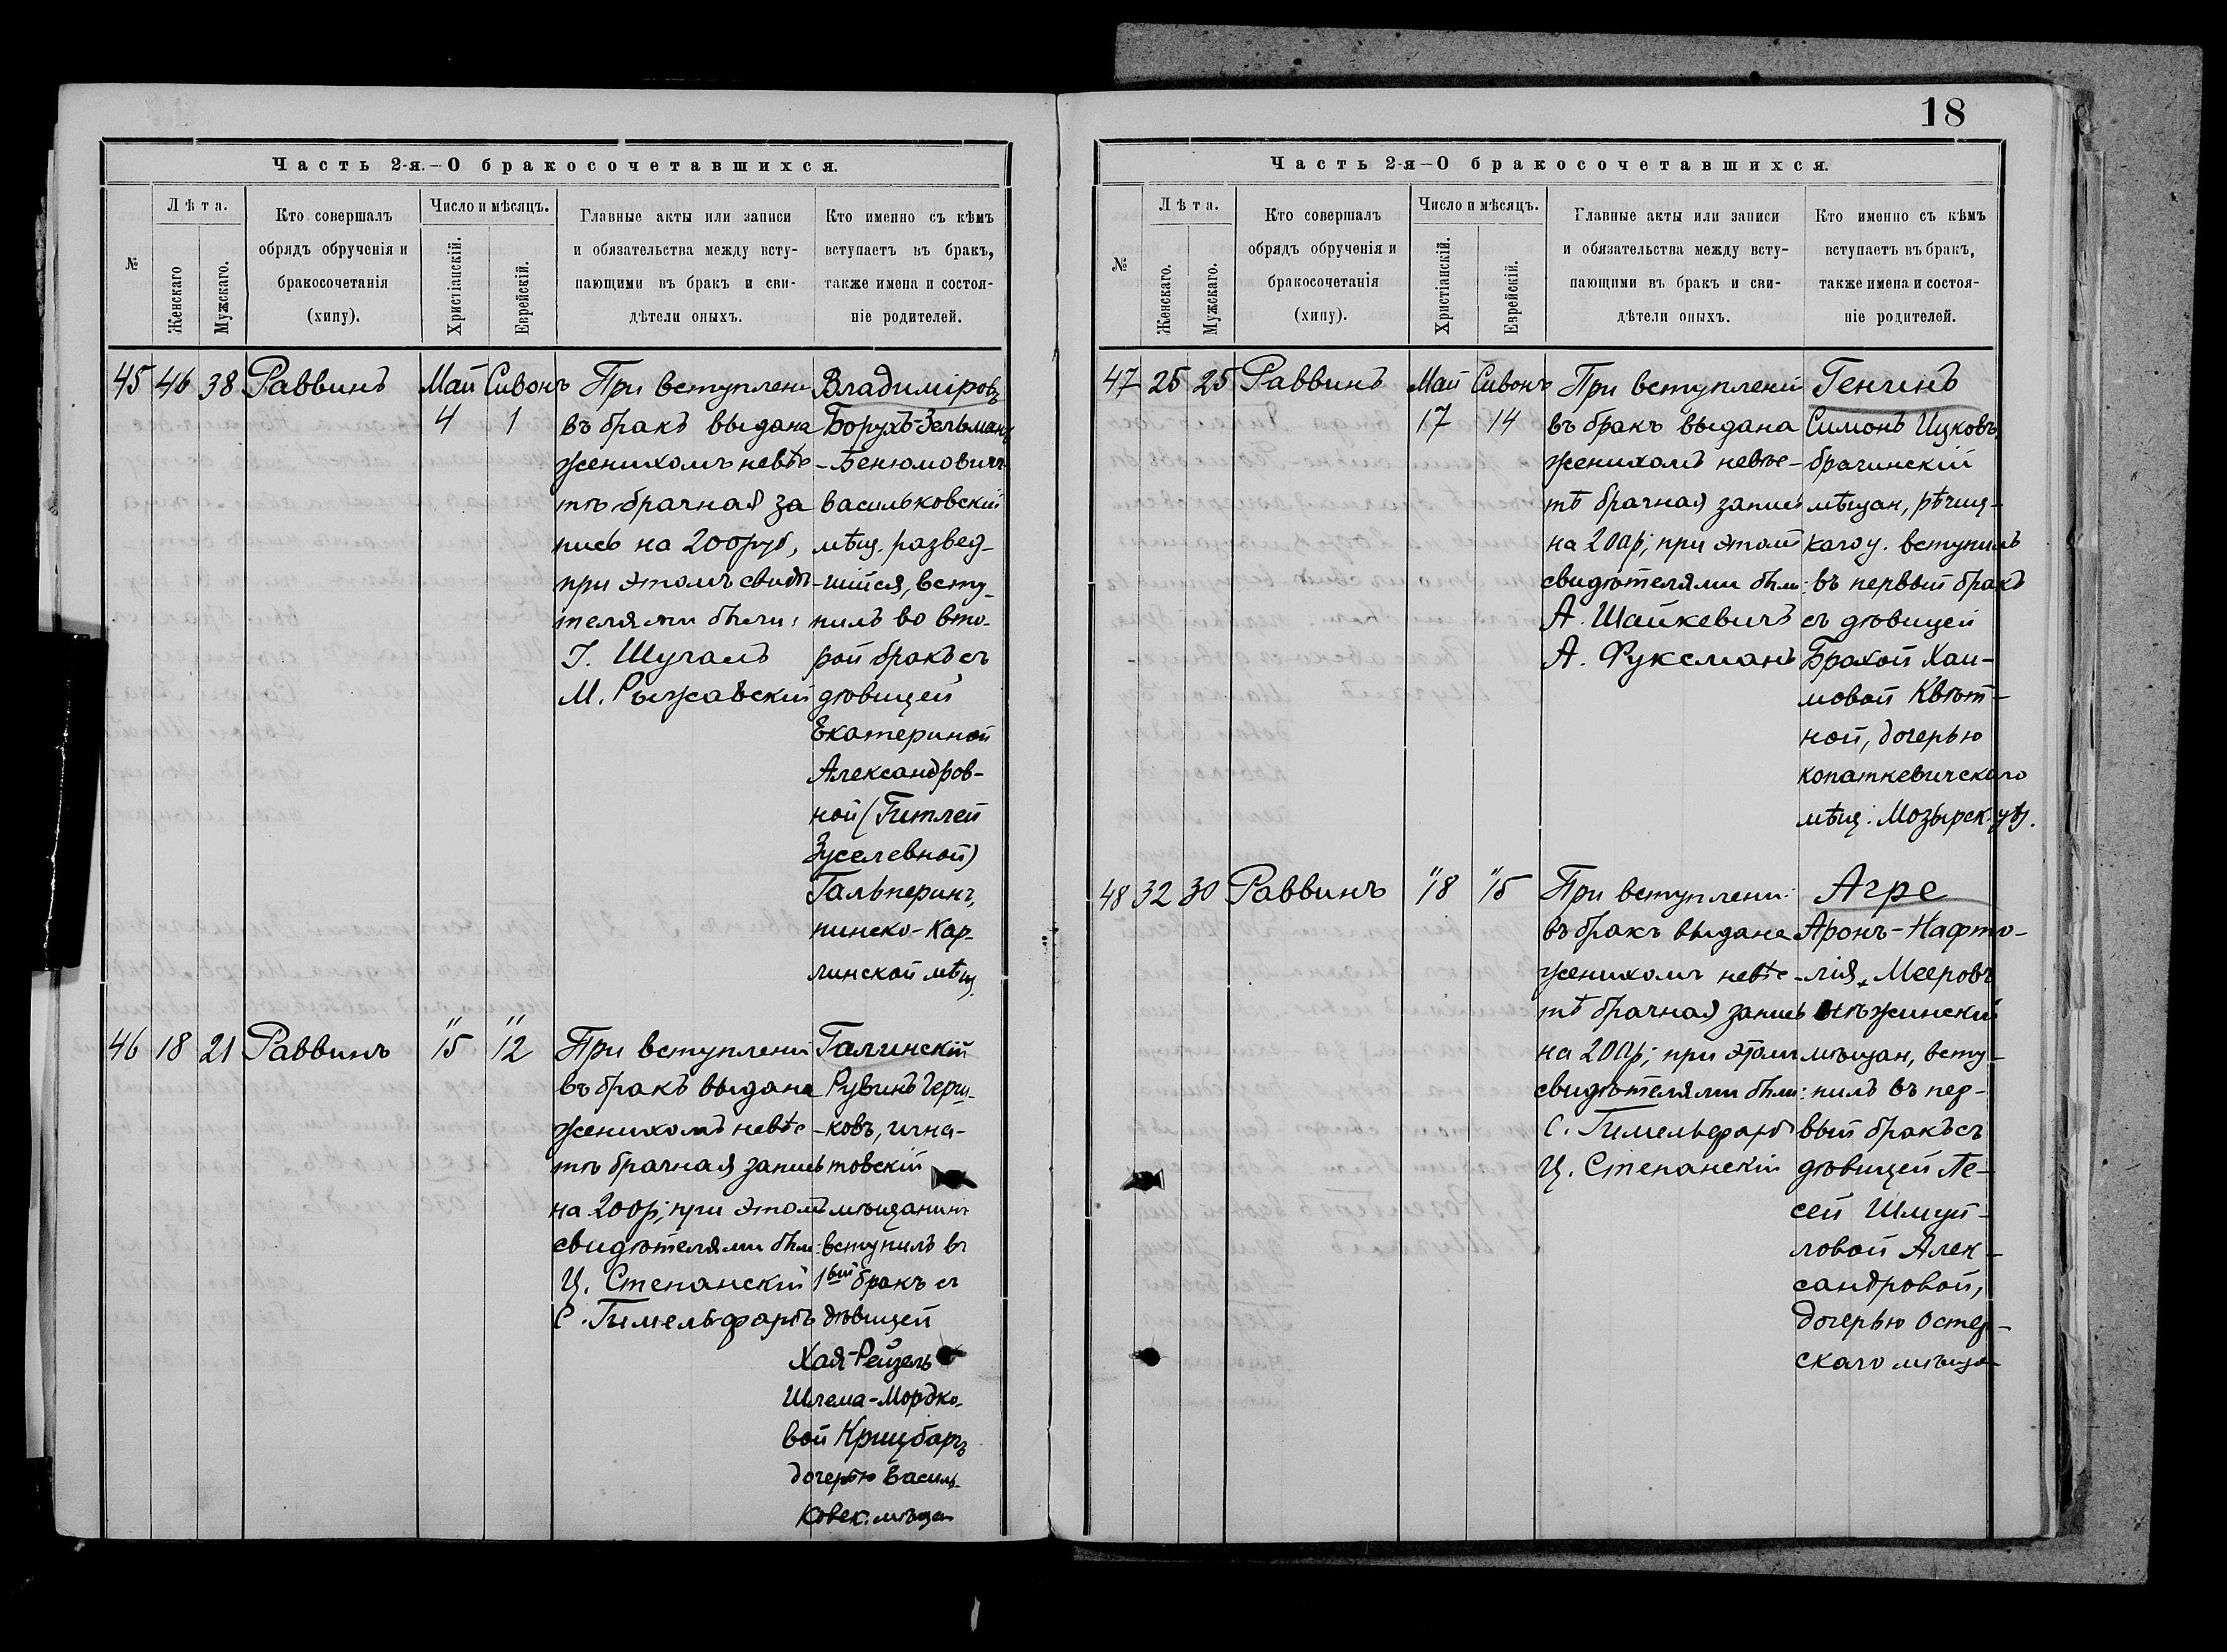 18
Часть 2-я.—О бракосочетавшихся.
№
Лѣта.
Женскаго
Мужскаго.
Кто совершалъ
обрядъ обрученія и
бракосочетанія
(хипу).
Число и мѣсяцъ.
Христіанскій.
Еврейскій.
Главные акты или записи
и обязательства между всту-
пающими въ бракъ и сви-
дѣтели оныхъ.
Кто именно съ кѣмъ
вступаетъ въ бракъ,
также имена и состоя-
ніе родителей.
45 46 38 Раввинъ Май Сивонъ
4 1
При вступлени
въ бракъ выдана
женихомъ невѣс-
тѣ брачная за
пись на 200 руб,
при этомъ свидѣ-
телями были:
I. Шучалъ
М. Рыжавскій
Владиміровъ
Борухъ-Зельманъ
-Бенюмовичъ
васильковскій
мѣщ. развед-
шійся, всту-
пилъ во вто-
рой бракъ съ
дѣвицей
Екатериной
Александров-
ной (Гитлей
Зуселевной)
Гальперинъ,
пинско-Кар-
линской мѣщ.
46 18 21 Раввинъ " 15 " 12
При вступлени
въ бракъ выдана
женихомъ невѣс-
тѣ брачная запись
на 200р; при этомъ
свидѣтелями были:
Ц. Степанскій
С. Гимельфарбъ
Галинскій
Рувинъ Герш-
ковъ, игна-
товскій
мѣщанинъ
вступилъ въ
1вый бракъ съ
дѣвицей
Хая-Рейзель
Шлема-Мордко-
вой Крицбаръ
дочерью Василь-
ковск. мѣщан
Часть 2-я—О бракосочетавшихся.
№
Лѣта.
Женскаго.
Мужскаго.
Кто совершалъ
обрядъ обрученія и
бракосочетанія
(хипу).
Число и мѣсяцъ.
Христіанскій.
Еврейскій.
Главные акты или записи
и обязательства между всту-
пающими въ бракъ и сви-
дѣтели оныхъ.
Кто именно съ кѣмъ
вступаетъ въ бракъ,
также имена и состоя-
ніе родителей.
47 25 25 Раввинъ Май Сивонъ
17 14
При вступлени
въ бракъ выдана
женихомъ невѣс-
тѣ брачная запись
на 200р; при этомъ
свидѣтелями были:
А. Шайкевичъ
А. Фуксманъ
Генинъ
Симонъ Ицковъ,
брагинскій
мѣщан, рѣчиц-
каго у. вступилъ
въ первый бракъ
съ дѣвицей
Брахой Хаи-
мовой Квѣт-
ной, дочерью
копаткевичскаго
мѣщ. Мозырск. уѣз.
48 32 30 Раввинъ " 18 " 15
При вступлени
въ бракъ выдана
женихомъ невѣс-
тѣ брачная запись
на 200р; при этомъ
свидѣтелями были:
С. Гимельфарбъ
Ц. Степанскій
Агре
Аронъ-Нафто-
лія Мееровъ
нѣжинскій
мѣщан, всту-
пилъ въ пер-
вый бракъ съ
дѣвицей Пе-
сей Шмуй-
ловой Алек-
сандровой,
дочерью Остер-
скаго мѣщан